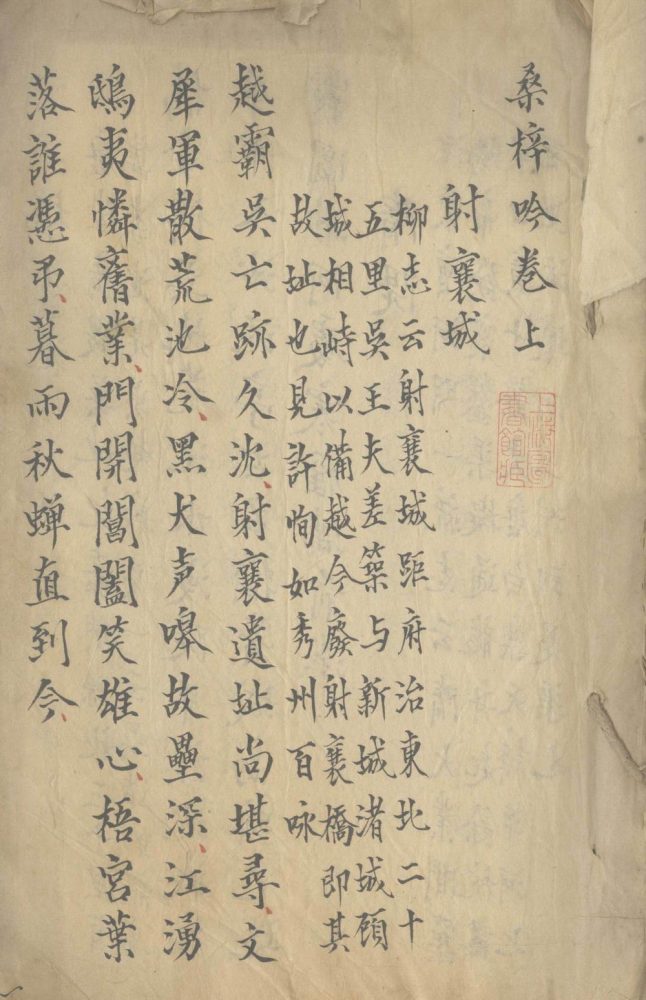 桑梓吟卷上
上海圖
書館藏
射襄城
柳志云射襄城距府治東北二十
五里吳王夫差築与新城渚城頋
城相峙以備越今廢射襄橋即其
故址也見許恂如秀州百咏
越霸吳亡跡久沈、射襄遺址尚堪尋、文
犀軍散荒池冷、黑犬声嘷故壘深、江湧
鴟夷憐舊業、門開閶闔笑雄心、梧宮葉
落誰憑吊、暮雨秋蟬直到今、